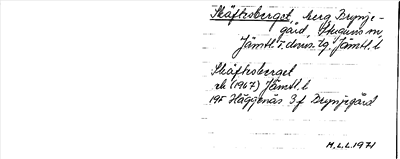 Skäftesberget, berg Brynje-
gård, Stuguns sn,
Jämtl. Ö. doms. tg. Jämtl. l
Skäftesberget
ek (1967) Jämtl. l
19F Häggenås 3 f Brynjegård
M.L.L. 1971